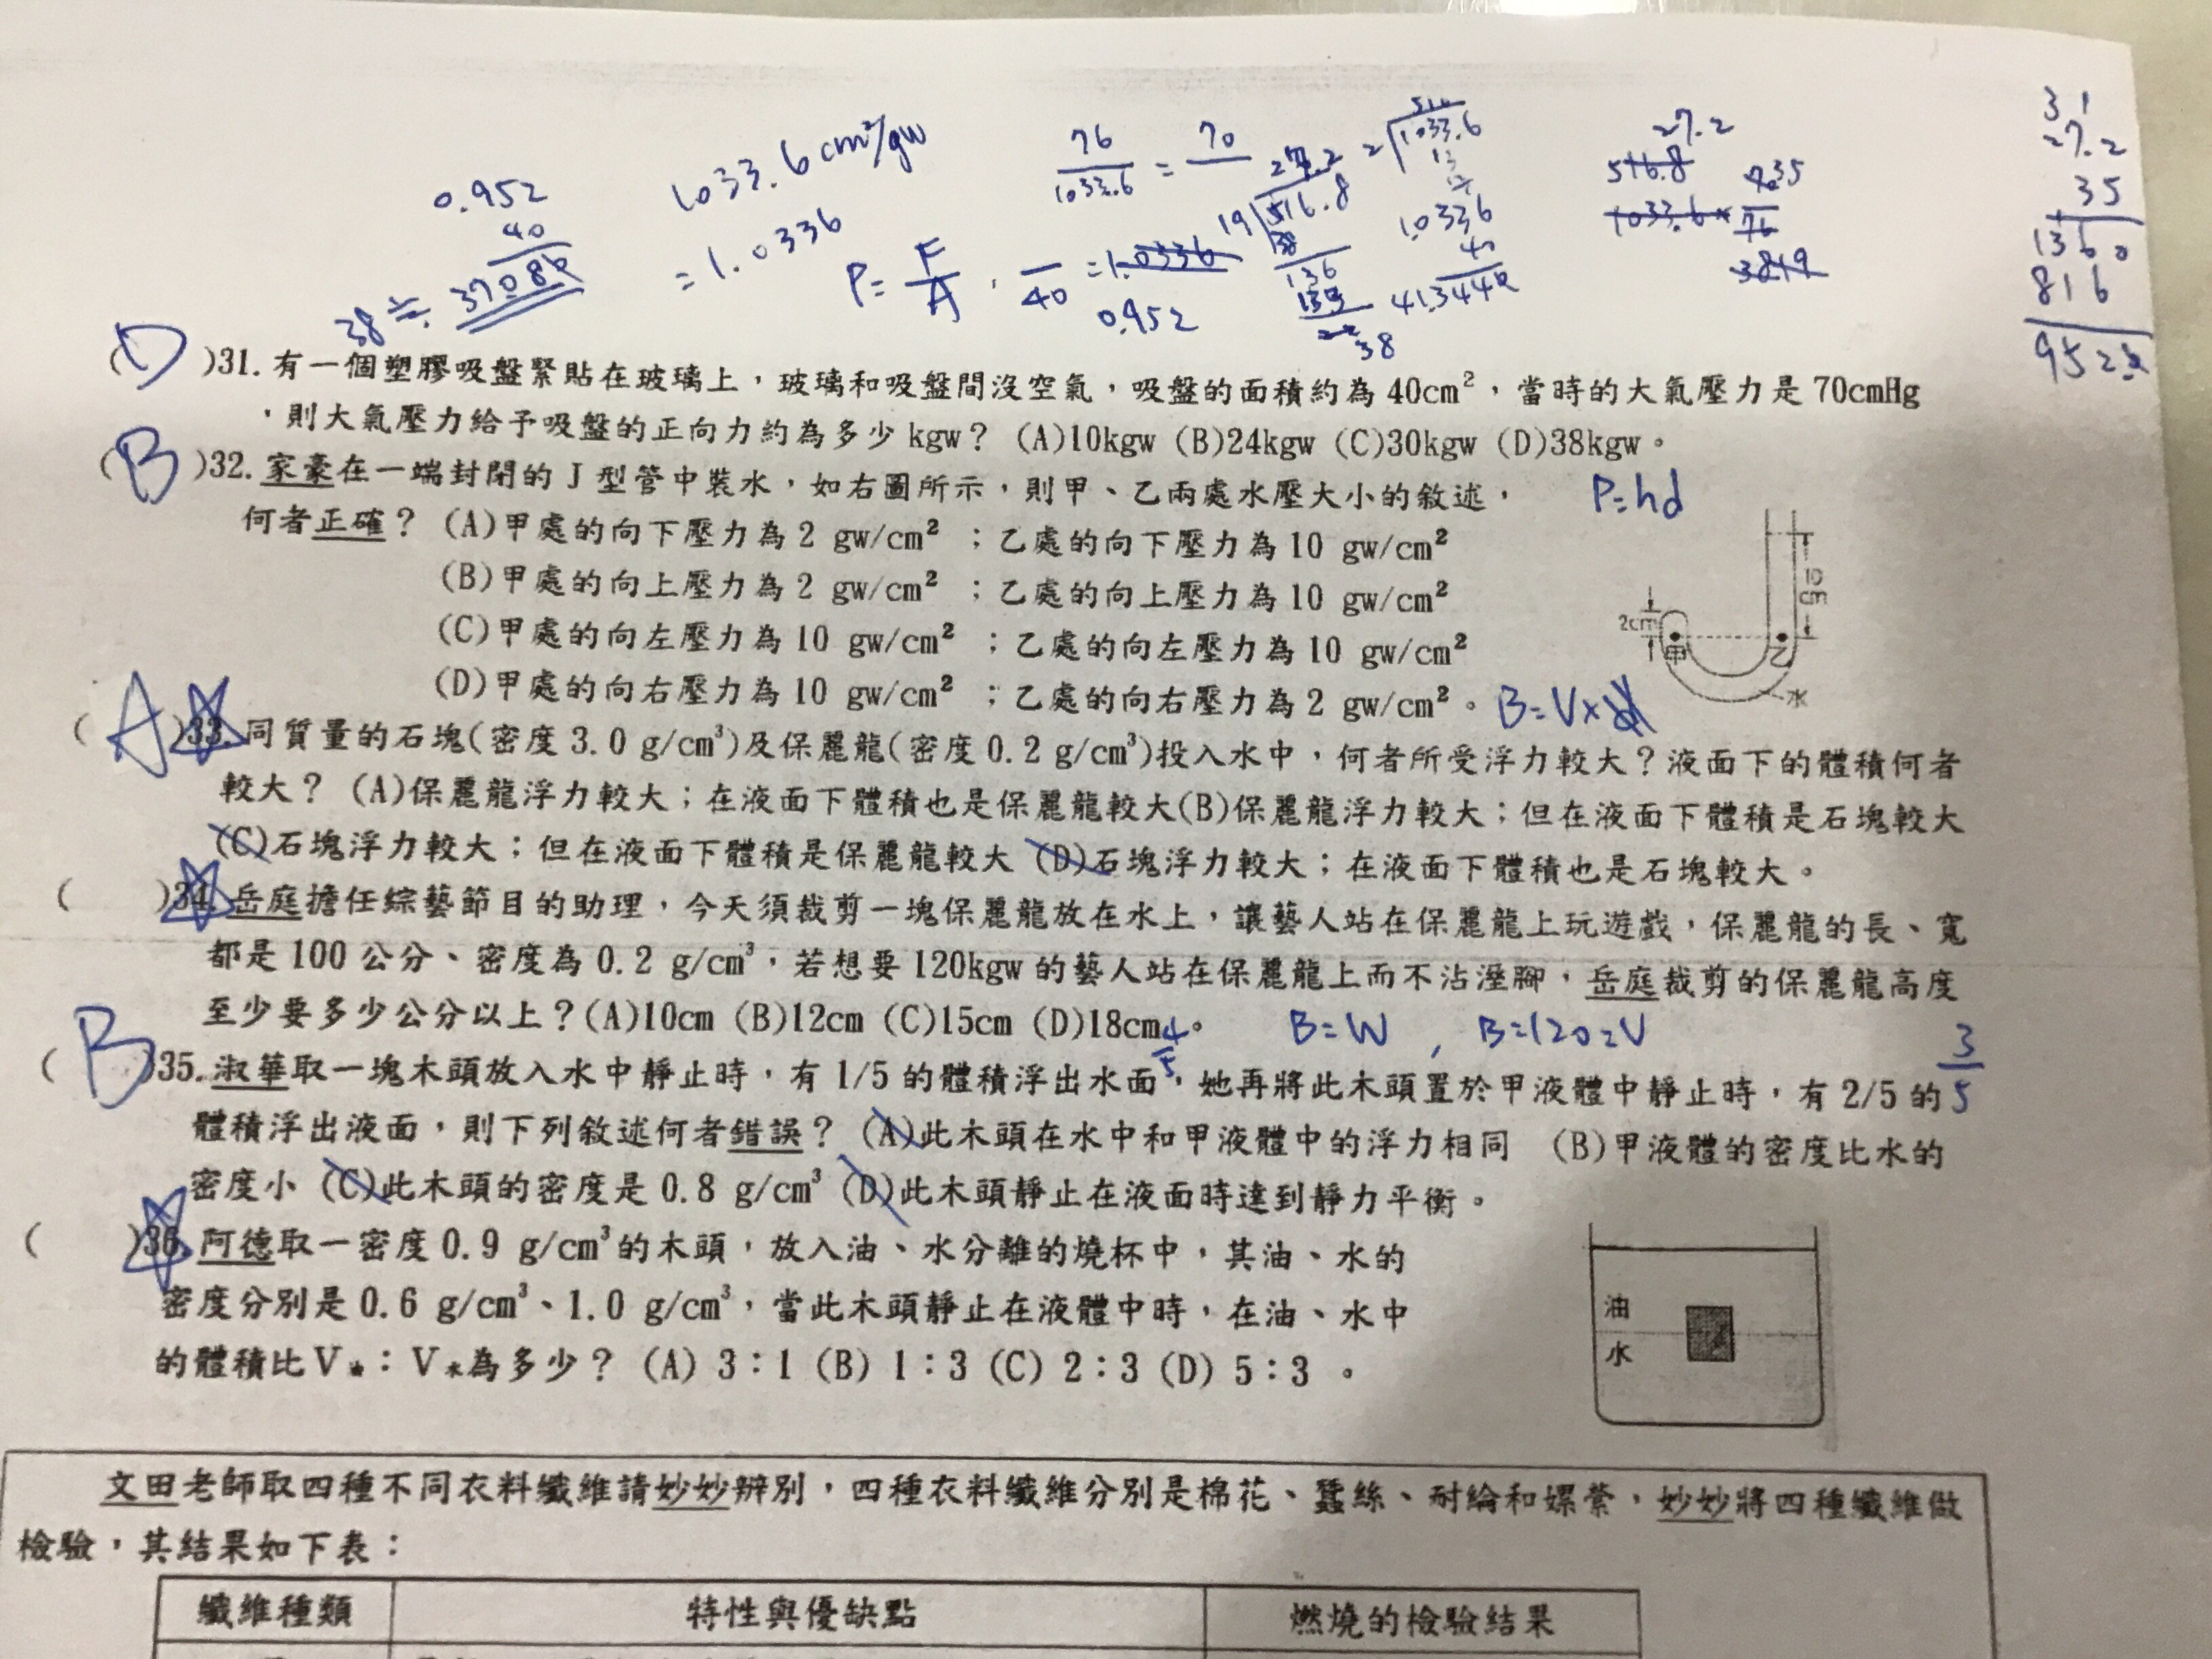 0.952
40
37.08
38≒
1033.6 cm²/gw
=1.0336
76/1033.6 = 70
P=F/A
40
=1.0336
0.952
27.2
19 516.8
38
136
133
38
2 1033.6
1.0336
40
41.3440
27.2
516.8
1033.6×
35
76
31
27.2
35
1360
816
952
(D)31.有一個塑膠吸盤緊貼在玻璃上，玻璃和吸盤間沒空氣，吸盤的面積約為40cm²，當時的大氣壓力是70cmHg
，則大氣壓力給予吸盤的正向力約為多少kgw？ (A)10kgw (B)24kgw (C)30kgw (D)38kgw。
(B)32.家豪在一端封閉的J型管中裝水，如右圖所示，則甲、乙兩處水壓大小的敘述，
P=hd
何者正確？ (A)甲處的向下壓力為2 gw/cm² ；乙處的向下壓力為10 gw/cm²
(B)甲處的向上壓力為2 gw/cm² ；乙處的向上壓力為10 gw/cm²
(C)甲處的向左壓力為10 gw/cm² ；乙處的向左壓力為10 gw/cm²
(D)甲處的向右壓力為10 gw/cm² ；乙處的向右壓力為2 gw/cm²。
10
cm
2cm
甲
乙
水
B=V×d
(A)33.同質量的石塊(密度3.0 g/cm³)及保麗龍(密度0.2 g/cm³)投入水中，何者所受浮力較大？液面下的體積何者
較大？ (A)保麗龍浮力較大；在液面下體積也是保麗龍較大(B)保麗龍浮力較大；但在液面下體積是石塊較大
(C)石塊浮力較大；但在液面下體積是保麗龍較大 (D)石塊浮力較大；在液面下體積也是石塊較大。
( )34.岳庭擔任綜藝節目的助理，今天須裁剪一塊保麗龍放在水上，讓藝人站在保麗龍上玩遊戲，保麗龍的長、寬
都是100公分、密度為0.2 g/cm³，若想要120kgw的藝人站在保麗龍上而不沾溼腳，岳庭裁剪的保麗龍高度
至少要多少公分以上？(A)10cm (B)12cm (C)15cm (D)18cm。
B=W , B=120=V
4/5
3/5
(B)35.淑華取一塊木頭放入水中靜止時，有1/5的體積浮出水面，她再將此木頭置於甲液體中靜止時，有2/5的
體積浮出液面，則下列敘述何者錯誤？ (A)此木頭在水中和甲液體中的浮力相同 (B)甲液體的密度比水的
密度小 (C)此木頭的密度是0.8 g/cm³ (D)此木頭靜止在液面時達到靜力平衡。
( )36.阿德取一密度0.9 g/cm³的木頭，放入油、水分離的燒杯中，其油、水的
密度分別是0.6 g/cm³、1.0 g/cm³，當此木頭靜止在液體中時，在油、水中
的體積比V油：V水為多少？ (A) 3：1 (B) 1：3 (C) 2：3 (D) 5：3 。
油
水
文田老師取四種不同衣料纖維請妙妙辨別，四種衣料纖維分別是棉花、蠶絲、耐綸和嫘縈，妙妙將四種纖維做
檢驗，其結果如下表：
纖維種類 特性與優缺點 燃燒的檢驗結果